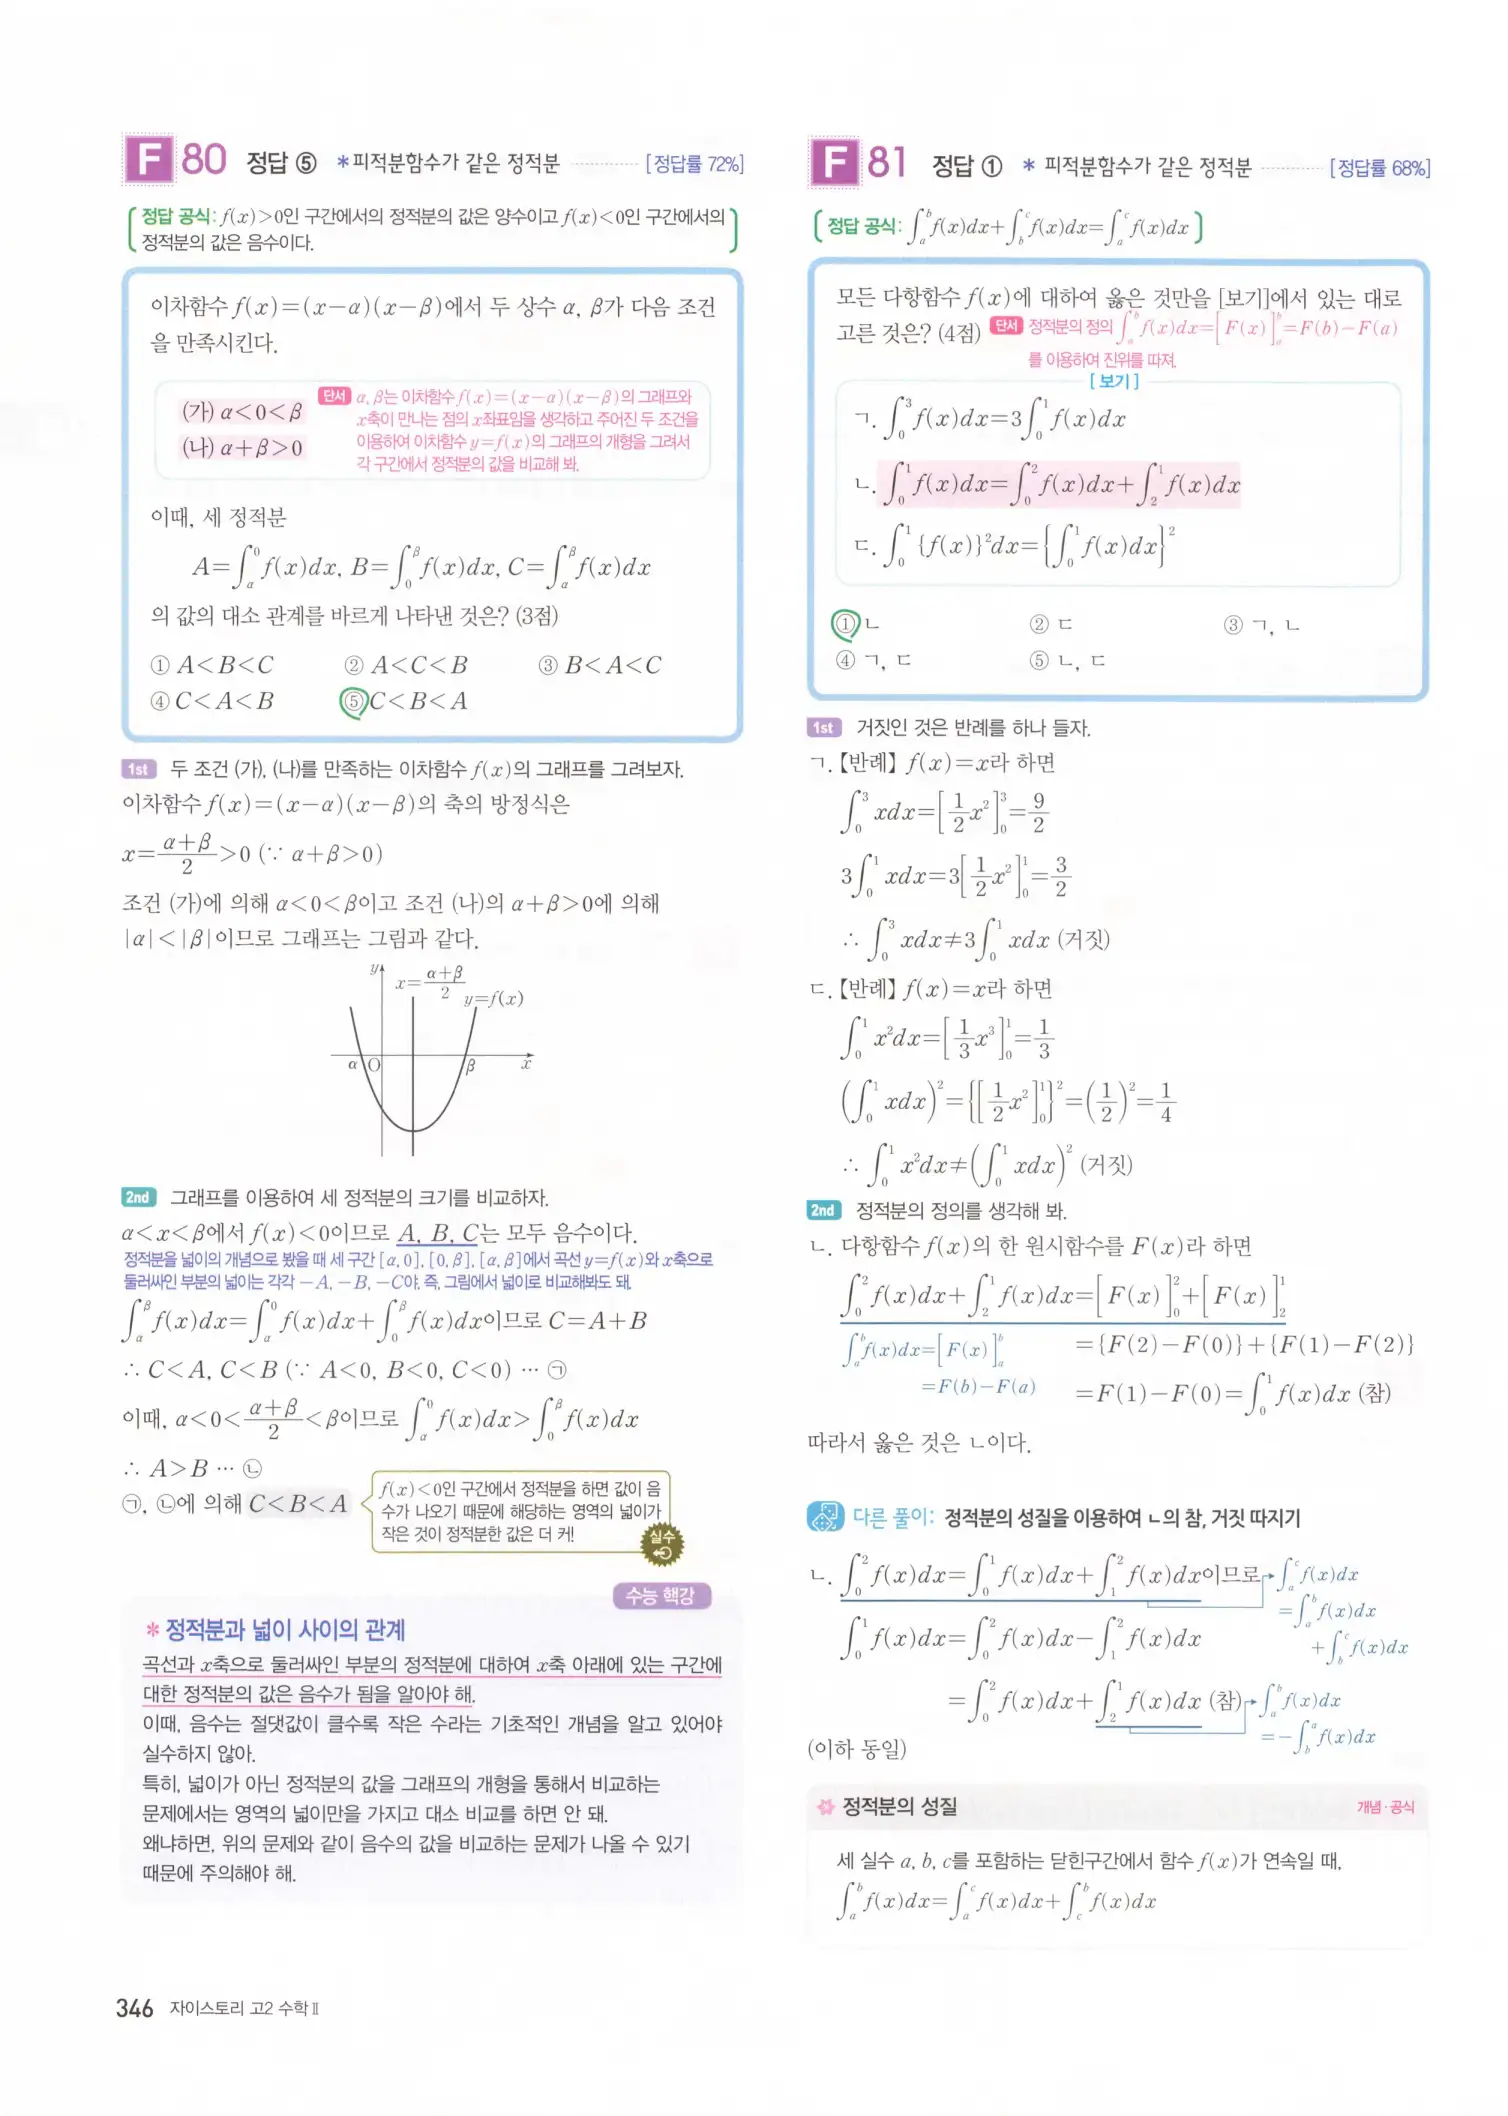 F 80 정답 ⑤ *피적분함수가 같은 정적분 [정답률 72%]
정답 공식: f(x)>0인 구간에서의 정적분의 값은 양수이고 f(x)<0인 구간에서의
정적분의 값은 음수이다.
이차함수 f(x)=(x-α)(x-β)에서 두 상수 α, β가 다음 조건
을 만족시킨다.
(가) α<0<β
(나) α+β>0
단서 α, β는 이차함수 f(x)=(x-α)(x-β)의 그래프와
x축이 만나는 점의 x좌표임을 생각하고 주어진 두 조건을
이용하여 이차함수 y=f(x)의 그래프의 개형을 그려서
각 구간에서 정적분의 값을 비교해 봐.
이때, 세 정적분
A=∫_α^0 f(x)dx, B=∫_0^β f(x)dx, C=∫_α^β f(x)dx
의 값의 대소 관계를 바르게 나타낸 것은? (3점)
① A<B<C ② A<C<B ③ B<A<C
④ C<A<B ⑤ C<B<A
1st 두 조건 (가), (나)를 만족하는 이차함수 f(x)의 그래프를 그려보자.
이차함수 f(x)=(x-α)(x-β)의 축의 방정식은
x=(α+β)/2>0 (∵ α+β>0)
조건 (가)에 의해 α<0<β이고 조건 (나)의 α+β>0에 의해
|α|<|β|이므로 그래프는 그림과 같다.
y x=(α+β)/2
y=f(x)
α O β x
2nd 그래프를 이용하여 세 정적분의 크기를 비교하자.
α<x<β에서 f(x)<0이므로 A, B, C는 모두 음수이다.
정적분을 넓이의 개념으로 봤을 때 세 구간 [α, 0], [0, β], [α, β]에서 곡선 y=f(x)와 x축으로
둘러싸인 부분의 넓이는 각각 -A, -B, -C야. 즉, 그림에서 넓이로 비교해봐도 돼.
∫_α^β f(x)dx=∫_α^0 f(x)dx+∫_0^β f(x)dx이므로 C=A+B
∴ C<A, C<B (∵ A<0, B<0, C<0) … ㉠
이때, α<0<(α+β)/2<β이므로 ∫_α^0 f(x)dx>∫_0^β f(x)dx
∴ A>B … ㉡
㉠, ㉡에 의해 C<B<A
f(x)<0인 구간에서 정적분을 하면 값이 음
수가 나오기 때문에 해당하는 영역의 넓이가
작은 것이 정적분한 값은 더 커!
실수
수능 핵강
* 정적분과 넓이 사이의 관계
곡선과 x축으로 둘러싸인 부분의 정적분에 대하여 x축 아래에 있는 구간에
대한 정적분의 값은 음수가 됨을 알아야 해.
이때, 음수는 절댓값이 클수록 작은 수라는 기초적인 개념을 알고 있어야
실수하지 않아.
특히, 넓이가 아닌 정적분의 값을 그래프의 개형을 통해서 비교하는
문제에서는 영역의 넓이만을 가지고 대소 비교를 하면 안 돼.
왜냐하면, 위의 문제와 같이 음수의 값을 비교하는 문제가 나올 수 있기
때문에 주의해야 해.
F 81 정답 ① * 피적분함수가 같은 정적분 [정답률 68%]
정답 공식: ∫_a^b f(x)dx+∫_b^c f(x)dx=∫_a^c f(x)dx
모든 다항함수 f(x)에 대하여 옳은 것만을 [보기]에서 있는 대로
고른 것은? (4점) 단서 정적분의 정의 ∫_a^b f(x)dx=[F(x)]_a^b=F(b)-F(a)
를 이용하여 진위를 따져.
[보기]
ㄱ. ∫_0^3 f(x)dx=3∫_0^1 f(x)dx
ㄴ. ∫_0^1 f(x)dx=∫_0^2 f(x)dx+∫_2^1 f(x)dx
ㄷ. ∫_0^1 {f(x)}²dx={∫_0^1 f(x)dx}²
① ㄴ ② ㄷ ③ ㄱ, ㄴ
④ ㄱ, ㄷ ⑤ ㄴ, ㄷ
1st 거짓인 것은 반례를 하나 들자.
ㄱ.【반례】 f(x)=x라 하면
∫_0^3 xdx=[1/2 x²]_0^3=9/2
3∫_0^1 xdx=3[1/2 x²]_0^1=3/2
∴ ∫_0^3 xdx≠3∫_0^1 xdx (거짓)
ㄷ.【반례】 f(x)=x라 하면
∫_0^1 x²dx=[1/3 x³]_0^1=1/3
(∫_0^1 xdx)²={[1/2 x²]_0^1}²=(1/2)²=1/4
∴ ∫_0^1 x²dx≠(∫_0^1 xdx)² (거짓)
2nd 정적분의 정의를 생각해 봐.
ㄴ. 다항함수 f(x)의 한 원시함수를 F(x)라 하면
∫_0^2 f(x)dx+∫_2^1 f(x)dx=[F(x)]_0^2+[F(x)]_2^1
∫_a^b f(x)dx=[F(x)]_a^b ={F(2)-F(0)}+{F(1)-F(2)}
=F(b)-F(a) =F(1)-F(0)=∫_0^1 f(x)dx (참)
따라서 옳은 것은 ㄴ이다.
다른 풀이: 정적분의 성질을 이용하여 ㄴ의 참, 거짓 따지기
ㄴ. ∫_0^2 f(x)dx=∫_0^1 f(x)dx+∫_1^2 f(x)dx이므로 ∫_a^c f(x)dx
=∫_a^b f(x)dx
∫_0^1 f(x)dx=∫_0^2 f(x)dx-∫_1^2 f(x)dx +∫_b^c f(x)dx
=∫_0^2 f(x)dx+∫_2^1 f(x)dx (참) ∫_a^b f(x)dx
=-∫_b^a f(x)dx
(이하 동일)
정적분의 성질 개념·공식
세 실수 a, b, c를 포함하는 닫힌구간에서 함수 f(x)가 연속일 때,
∫_a^b f(x)dx=∫_a^c f(x)dx+∫_c^b f(x)dx
346 자이스토리 고2 수학Ⅱ